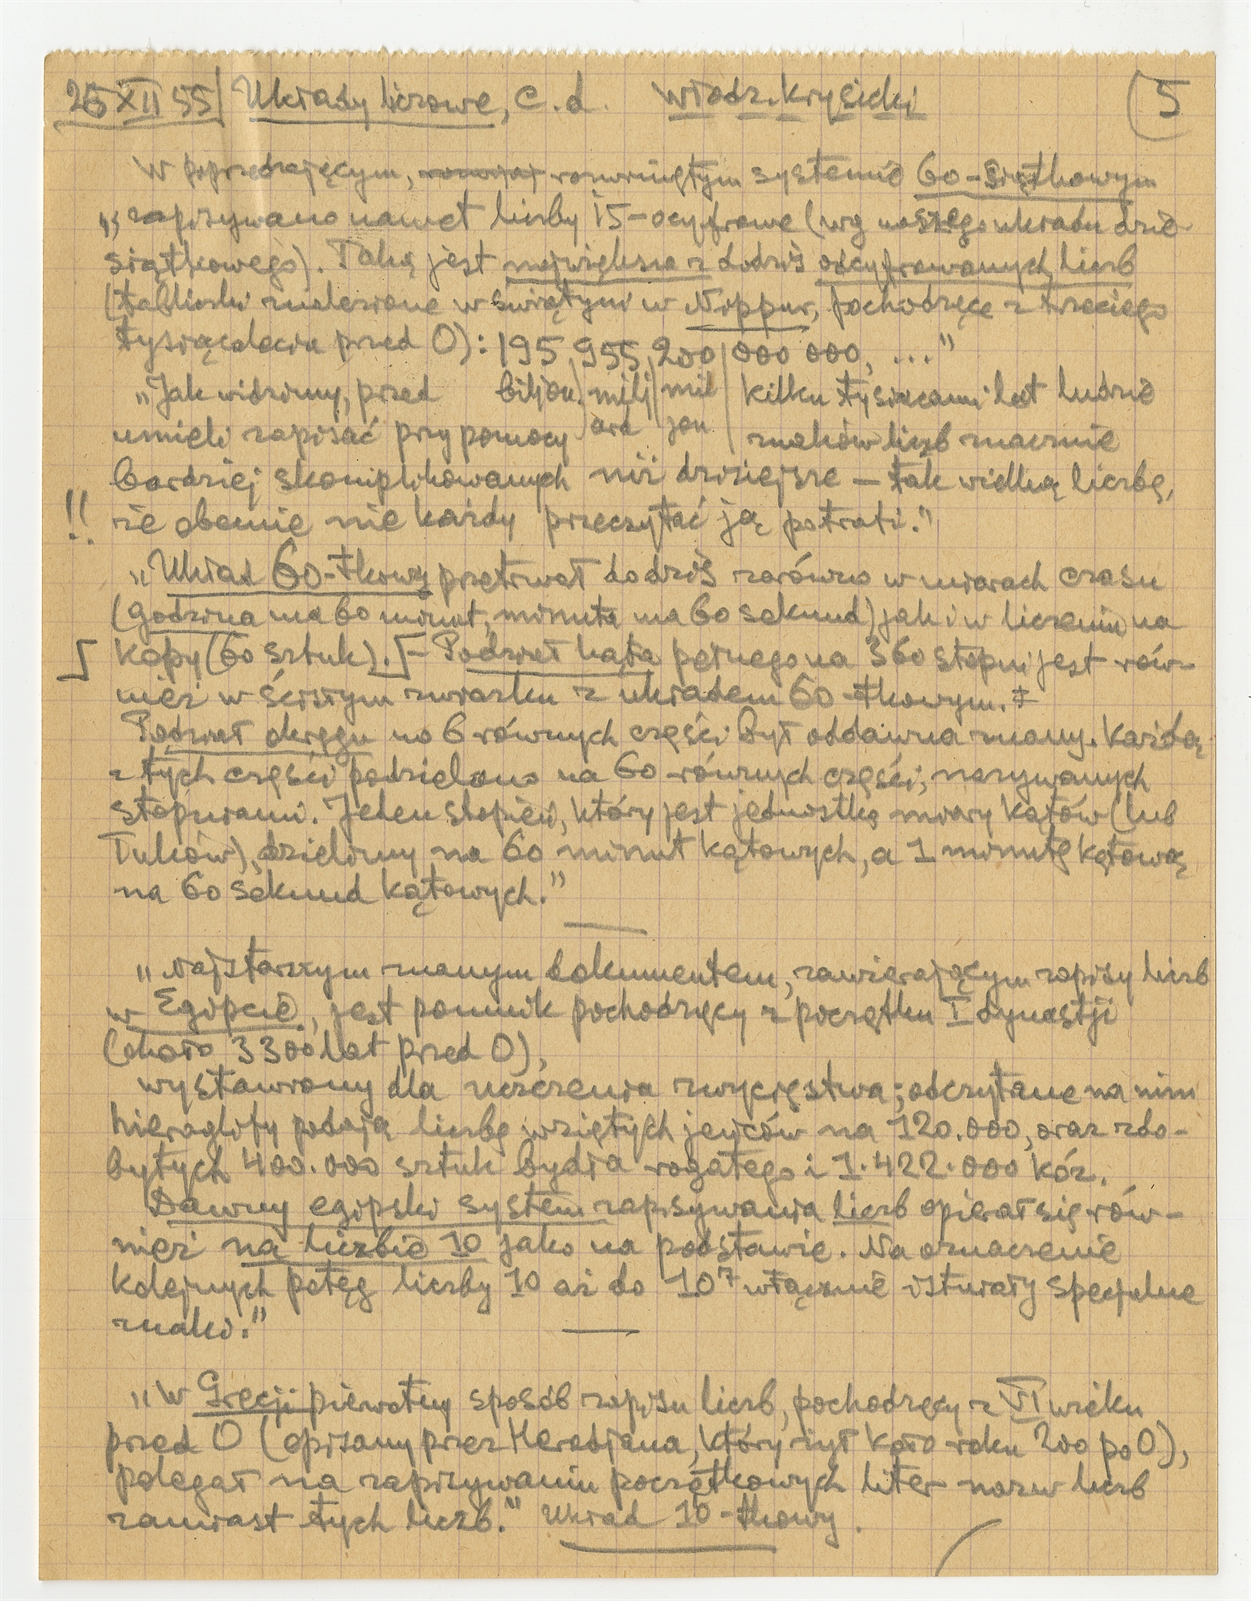 26 XII 55 | Układy liczowe, c.d. Włodz. Krysicki (5
W poprzedzającym, rozwinętym systemie 60-siątkowym
„zapisywano nawet liczby 15-ocyfrowe (wg naszego układu dzie-
siątkowego). Taką jest największa z dodziś odcyfrowanych liczb
(tabliczki znalezione w świątyni w Nippur, pochodzące z trzeciego
tysiąclecia przed 0): 195,955,200,000 000, ..."
„Jak widzimy, przed biljon milj mil kilku tysiącami lat ludzie
umieli zapisać przy pomocy ard jon znaków liczb znacznie
bardziej skomplikowanych niż dzisiejsze – tak wielką liczbę,
!! że obecnie nie każdy przeczytać ją potrafi."
„Układ 60-tkowy przetrwał do dziś zarówno w miarach czasu
(godzina ma 60 minut, minuta ma 60 sekund) jak i w liczeniu na
kopy (60 sztuk). – Podział kąta pełnego na 360 stopni jest rów-
nież w ścisłym związku z układem 60-tkowym.
Podział okręgu na 6 równych części był oddawna znany. Każdą
z tych części podzielono na 60 równych części, nazywanych
stopniami. Jeden stopień, który jest jednostką miary kątów (lub
łuków), dzielimy na 60 minut kątowych, a 1 minutę kątową
na 60 sekund kątowych."
„Najstarszym znanym dokumentem, zawierającym zapisy liczb
w Egipcie, jest pomnik pochodzący z początku I dynastji
(około 3300 lat przed 0),
wystawiony dla uczczenia zwycięstwa; odczytane na nim
hieroglify podają liczbę wziętych jeńców na 120.000, oraz zdo-
bytych 400.000 sztuk bydła rogatego i 1.422.000 kóz.
Dawny egipski system zapisywania liczb opierał się rów-
nież na liczbie 10 jako na podstawie. Na oznaczenie
kolejnych potęg liczby 10 aż do 10⁷ włącznie istniały specjalne
znaki."
„W Grecji pierwotny sposób zapisu liczb, pochodzący z VI wieku
przed 0 (opisany przez Herodjana, który żył koło roku 200 po 0),
polegał na zapisywaniu początkowych liter nazw liczb
zamiast tych liczb." Układ 10-tkowy.